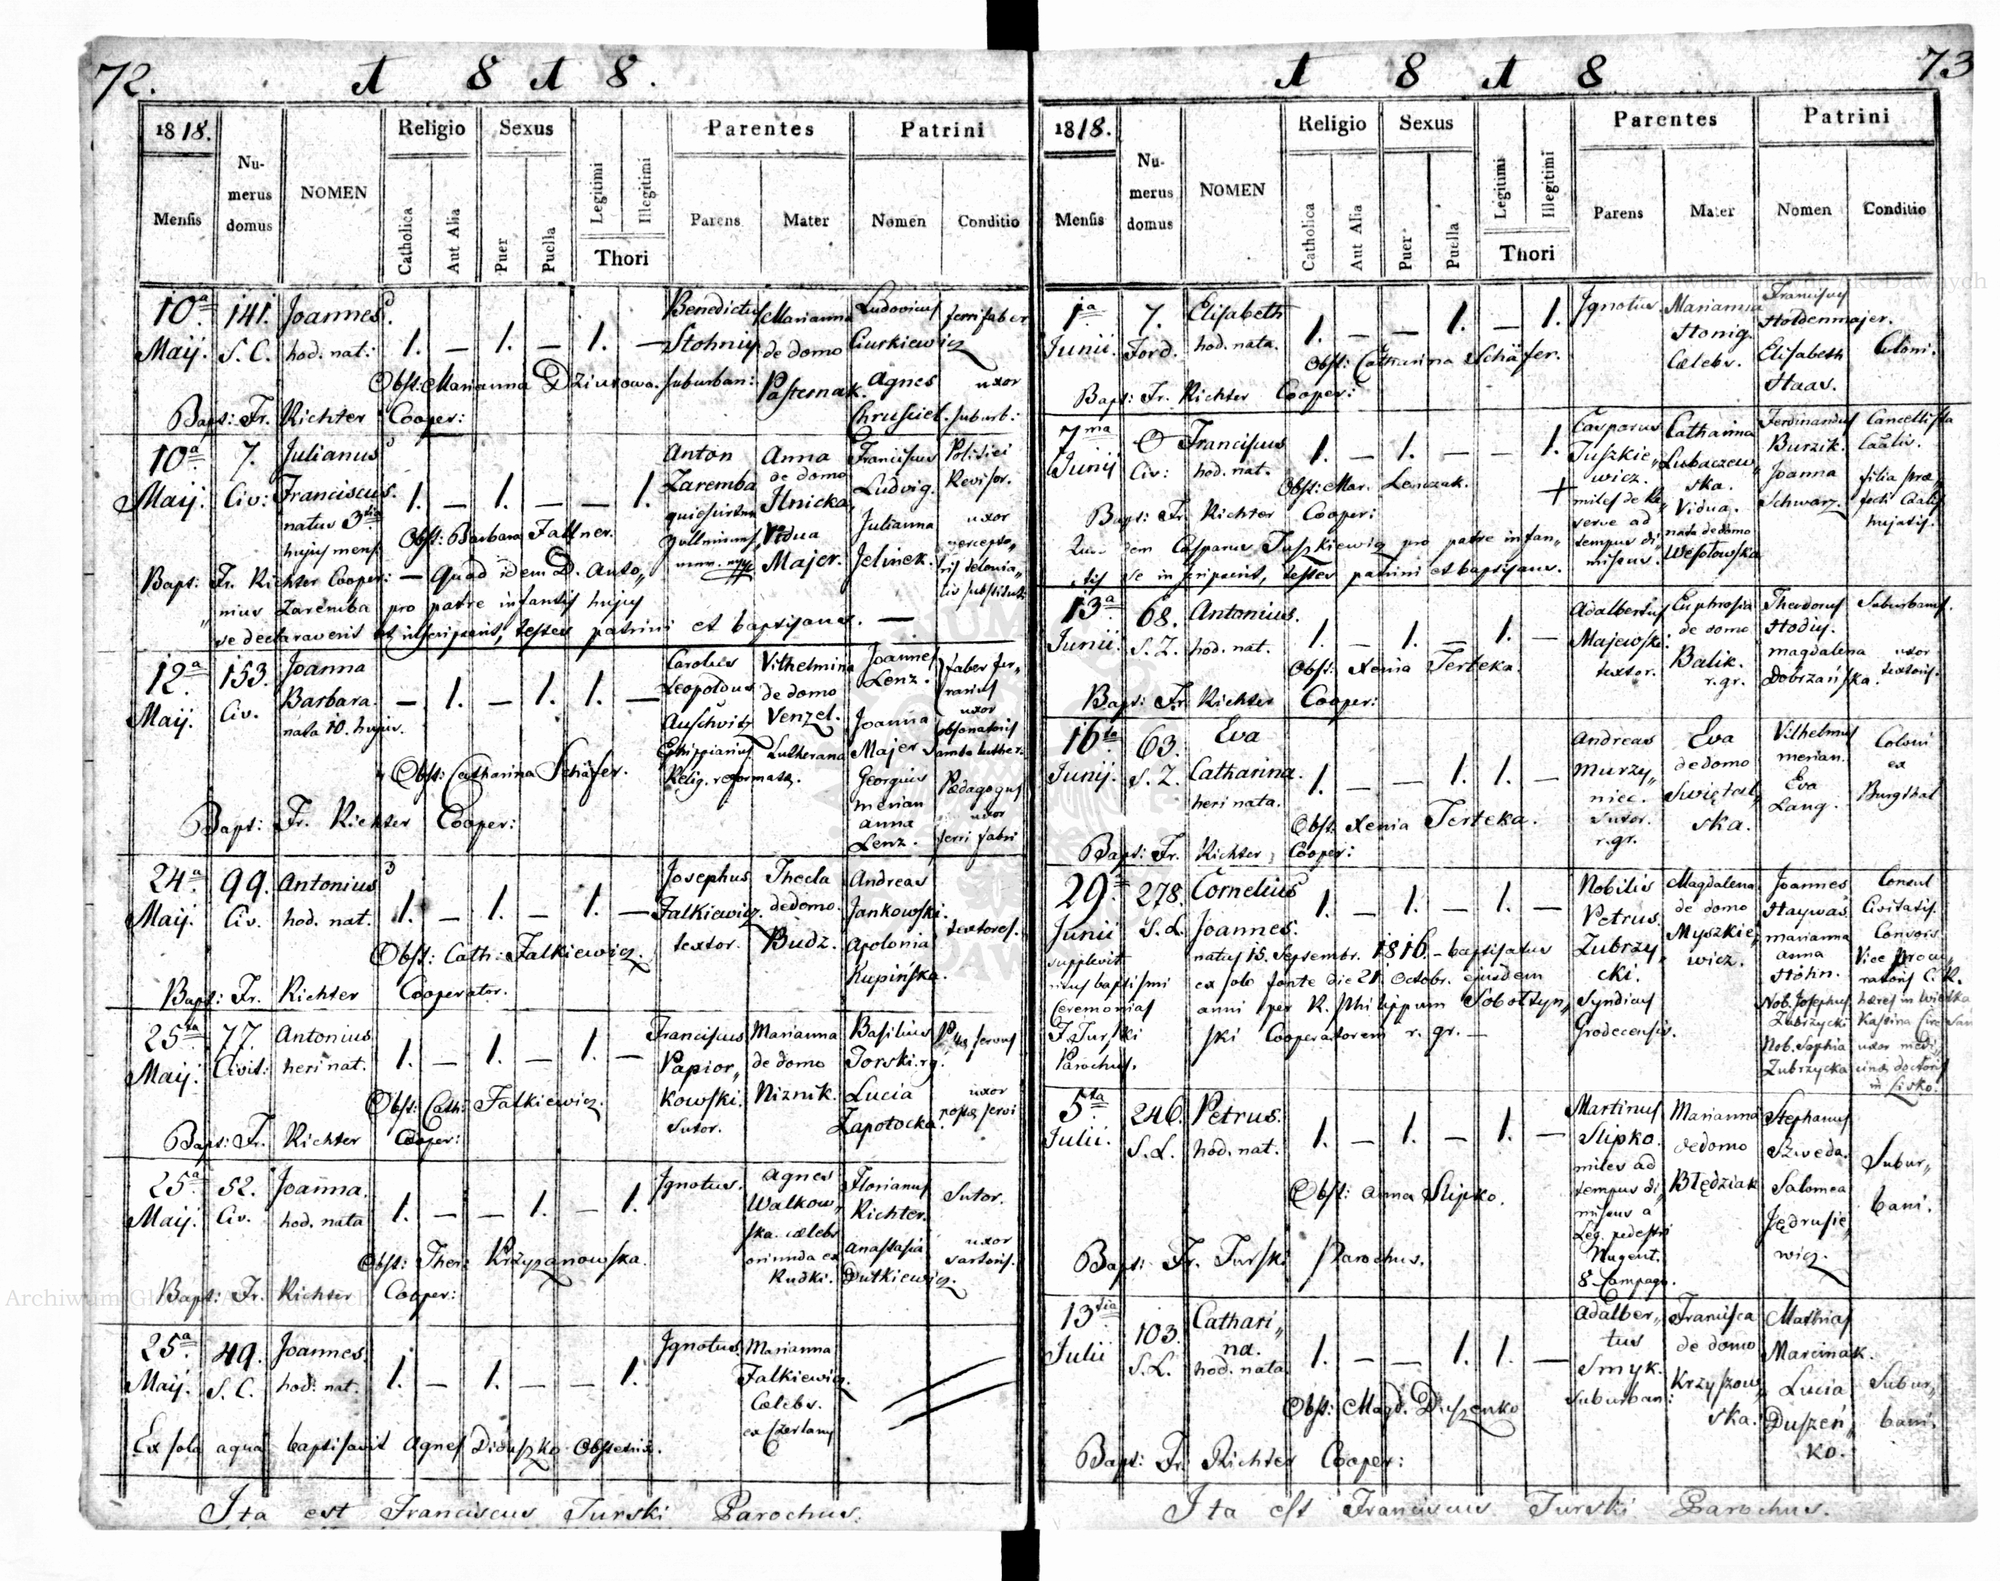 72.
1 8 1 8.
1818.
Mensis
Numerus domus
NOMEN
Religio
Catholica
Aut Alia
Sexus
Puer
Puella
Legitimi
Illegitimi
Thori
Parentes
Parens
Mater
Patrini
Nomen
Conditio
10a Maij.
141. S. C.
Joannes.
hod. nat:
1. — 1. — 1. —
Benedictus
Stohniy
suburban:
Marianna
de domo
Pasternak.
Ludovicus
Gurkiewicz
Agnes
Chrusciel.
ferrifaber
uxor
suburb:
Obst: Marianna Dziurowa.
Bapt: Fr. Richter Cooper:
10a Maij.
7. Civ:
Julianus
Franciscus.
natus 3tia
hujus mens
1. — 1. — — 1.
Anton
Zaremba
Anna
de domo
Ilnicka,
Vidua
Majer.
Franciscus
Ludwig.
Julianna
Jelinek.
Politici
Revisor.
uxor
Obst: Barbara Fallner.
Bapt: Fr. Richter Cooper: — Quod idem D. Anto„
nius Zaremba pro patre infantis hujus
se declaraverit et inscripserit, testes patrini et baptisans. —
12a Maij.
153. Civ.
Joanna
Barbara
nata 10. hujus.
— 1. — 1. 1. —
Carolus
Leopoldus
Auschwitz
Ephippiarius
Relig. reformatæ.
Vilhelmina
de domo
Venzel.
Lutherana
Joannes
Lenz.
Joanna
Majer
Georgius
merian
anna
Lenz.
faber fer„
rarius
uxor
ambo luther.
Pædagogus
uxor
ferri fabri
Obst: Catharina Schäfer.
Bapt: Fr. Richter Cooper:
24a Maij.
99. Civ.
Antonius
hod. nat.
1. — 1. — 1. —
Josephus
Falkiewicz.
textor.
Thecla
de domo.
Budz.
Andreas
Jankowski.
Apolonia
Kupińska.
textores.
Obst: Cath: Falkiewicz.
Bapt: Fr. Richter Cooperator.
25ta Maij.
77. Civit:
Antonius
heri nat.
1. — 1. — 1. —
Franciscus
Papior„
kowski.
Sutor.
Marianna
de domo
Niznik.
Basilius
Torski r.g.
Lucia
Zapotocka.
servus
uxor
postæ servi
Obst: Cath: Falkiewicz.
Bapt: Fr. Richter Cooper:
25a Maij.
52. Civ.
Joanna.
hod. nata
1. — — 1. — 1.
Ignotus.
Agnes
Walkow„
ska. cælebs
oriunda ex
Rudki.
Florianus
Richter.
Anastasia
Dutkiewicz.
Sutor.
uxor
sartoris.
Obst: Ther: Krzyzanowska.
Bapt: Fr. Richter Cooper:
25a Maij.
49. S. C.
Joannes.
hod. nat.
1. — 1. — — 1.
Ignotus.
Marianna
Falkiewicz.
Cælebs.
ex Czerlany
Ex sola aqua baptisavit Agnes Diduszko Obstetrix.
Ita est Franciscus Turski Parochus.
73
1 8 1 8
1818.
Mensis
Numerus domus
NOMEN
Religio
Catholica
Aut Alia
Sexus
Puer
Puella
Legitimi
Illegitimi
Thori
Parentes
Parens
Mater
Patrini
Nomen
Conditio
1a Junii.
7. Ford.
Elisabeth
hod. nata.
1. — — 1. — 1.
Ignotus
Marianna
Honig.
Cælebs.
Franciscus
Holdenmajer.
Elisabeth
Haas.
Coloni.
Obst: Catharina Schäfer.
Bapt: Fr. Richter Cooper:
7ma Junij
0 Civ:
Franciscus
hod. nat.
1. — 1. — — 1.
Casparus
Tuszkie„
wicz.
miles de Re„
serve ad
tempus di„
missus.
Catharina
Lubaczew„
ska.
Vidua.
nata de domo
Wesołowska
Ferdinandus
Burzik.
Joanna
Schwarz.
Cancellista
Caalis.
filia præ„
fecti Caalis
hujatis.
Obst: Mar. Lenczuk.
Bapt: Fr. Richter Cooper:
dem Casparus Tuszkiewicz pro patre infan„
tis se inscripserit, testes patrini et baptisans.
13a Junii.
68. S. Z.
Antonius.
hod. nat.
1. — 1. — 1. —
Adalbertus
Majewski
textor.
Euphrosia
de domo
Balik.
r. gr.
Theodorus
Hodiy.
magdalena
Dobrzańska.
Suburbanus.
uxor
textoris.
Obst: Xenia Terteka.
Bapt: Fr. Richter Cooper:
16ta Junij.
63. S. Z.
Eva
Catharina.
heri nata.
1. — — 1. 1. —
Andreas
Murzy„
niec.
Sutor.
r. gr.
Eva
de domo
Swiętal„
ska.
Vilhelmus
merian.
Eva
Lang.
Coloni
ex
Burgthal
Obst: Xenia Terteka.
Bapt: Fr. Richter Cooper:
29a Junii
278. S. L.
Cornelius
Joannes.
1. — 1. — 1. —
natus 15. Septembr. 1816. – baptisatus
ex solo fonte die 21. Octobr. ejusdem
anni per R. Philippum Sobotzyn„
ski Cooperatorem r. gr. —
supplevit
baptismi
Ceremonias
F. Turski
Parochus.
Nobilis
Petrus
Zubrzy„
cki.
Syndicus
Grodecensis.
Magdalena
de domo
Myszkie„
wicz.
Joannes
Haywas
marianna
anna
Höhn.
Nob. Josephus
Zubrzycki
Nob. Sophia
Zubrzycka
Consul
Civitatis.
Consors
Vice procu„
ratoris C. R.
hæres in
uxor medi„
cinæ doctoris
in Lisko.
5ta Julii.
246. S. L.
Petrus.
hod. nat.
1. — 1. — 1. —
Martinus
Slipko.
miles ad
tempus di„
missus a
Leg. pedestri
Nugent.
8 Campagn.
Marianna
de domo
Błędziak
Stephanus
Szweda.
Salomea
Jędrusie„
wicz.
Subur„
bani.
Obst: Anna Slipko.
Bapt: Fr. Turski Parochus.
13tia Julii
103. S. L.
Cathari„
na.
hod. nata
1. — — 1. 1. —
Adalber„
tus
Smyk.
suburban:
Francisca
de domo
Krzyszow„
ska.
Mathias
Marcinak.
Lucia
Duszeń„
ko.
Subur„
bani.
Obst: Magd. Duszenko
Bapt: Fr. Richter Cooper:
Ita est Franciscus Turski Parochus.